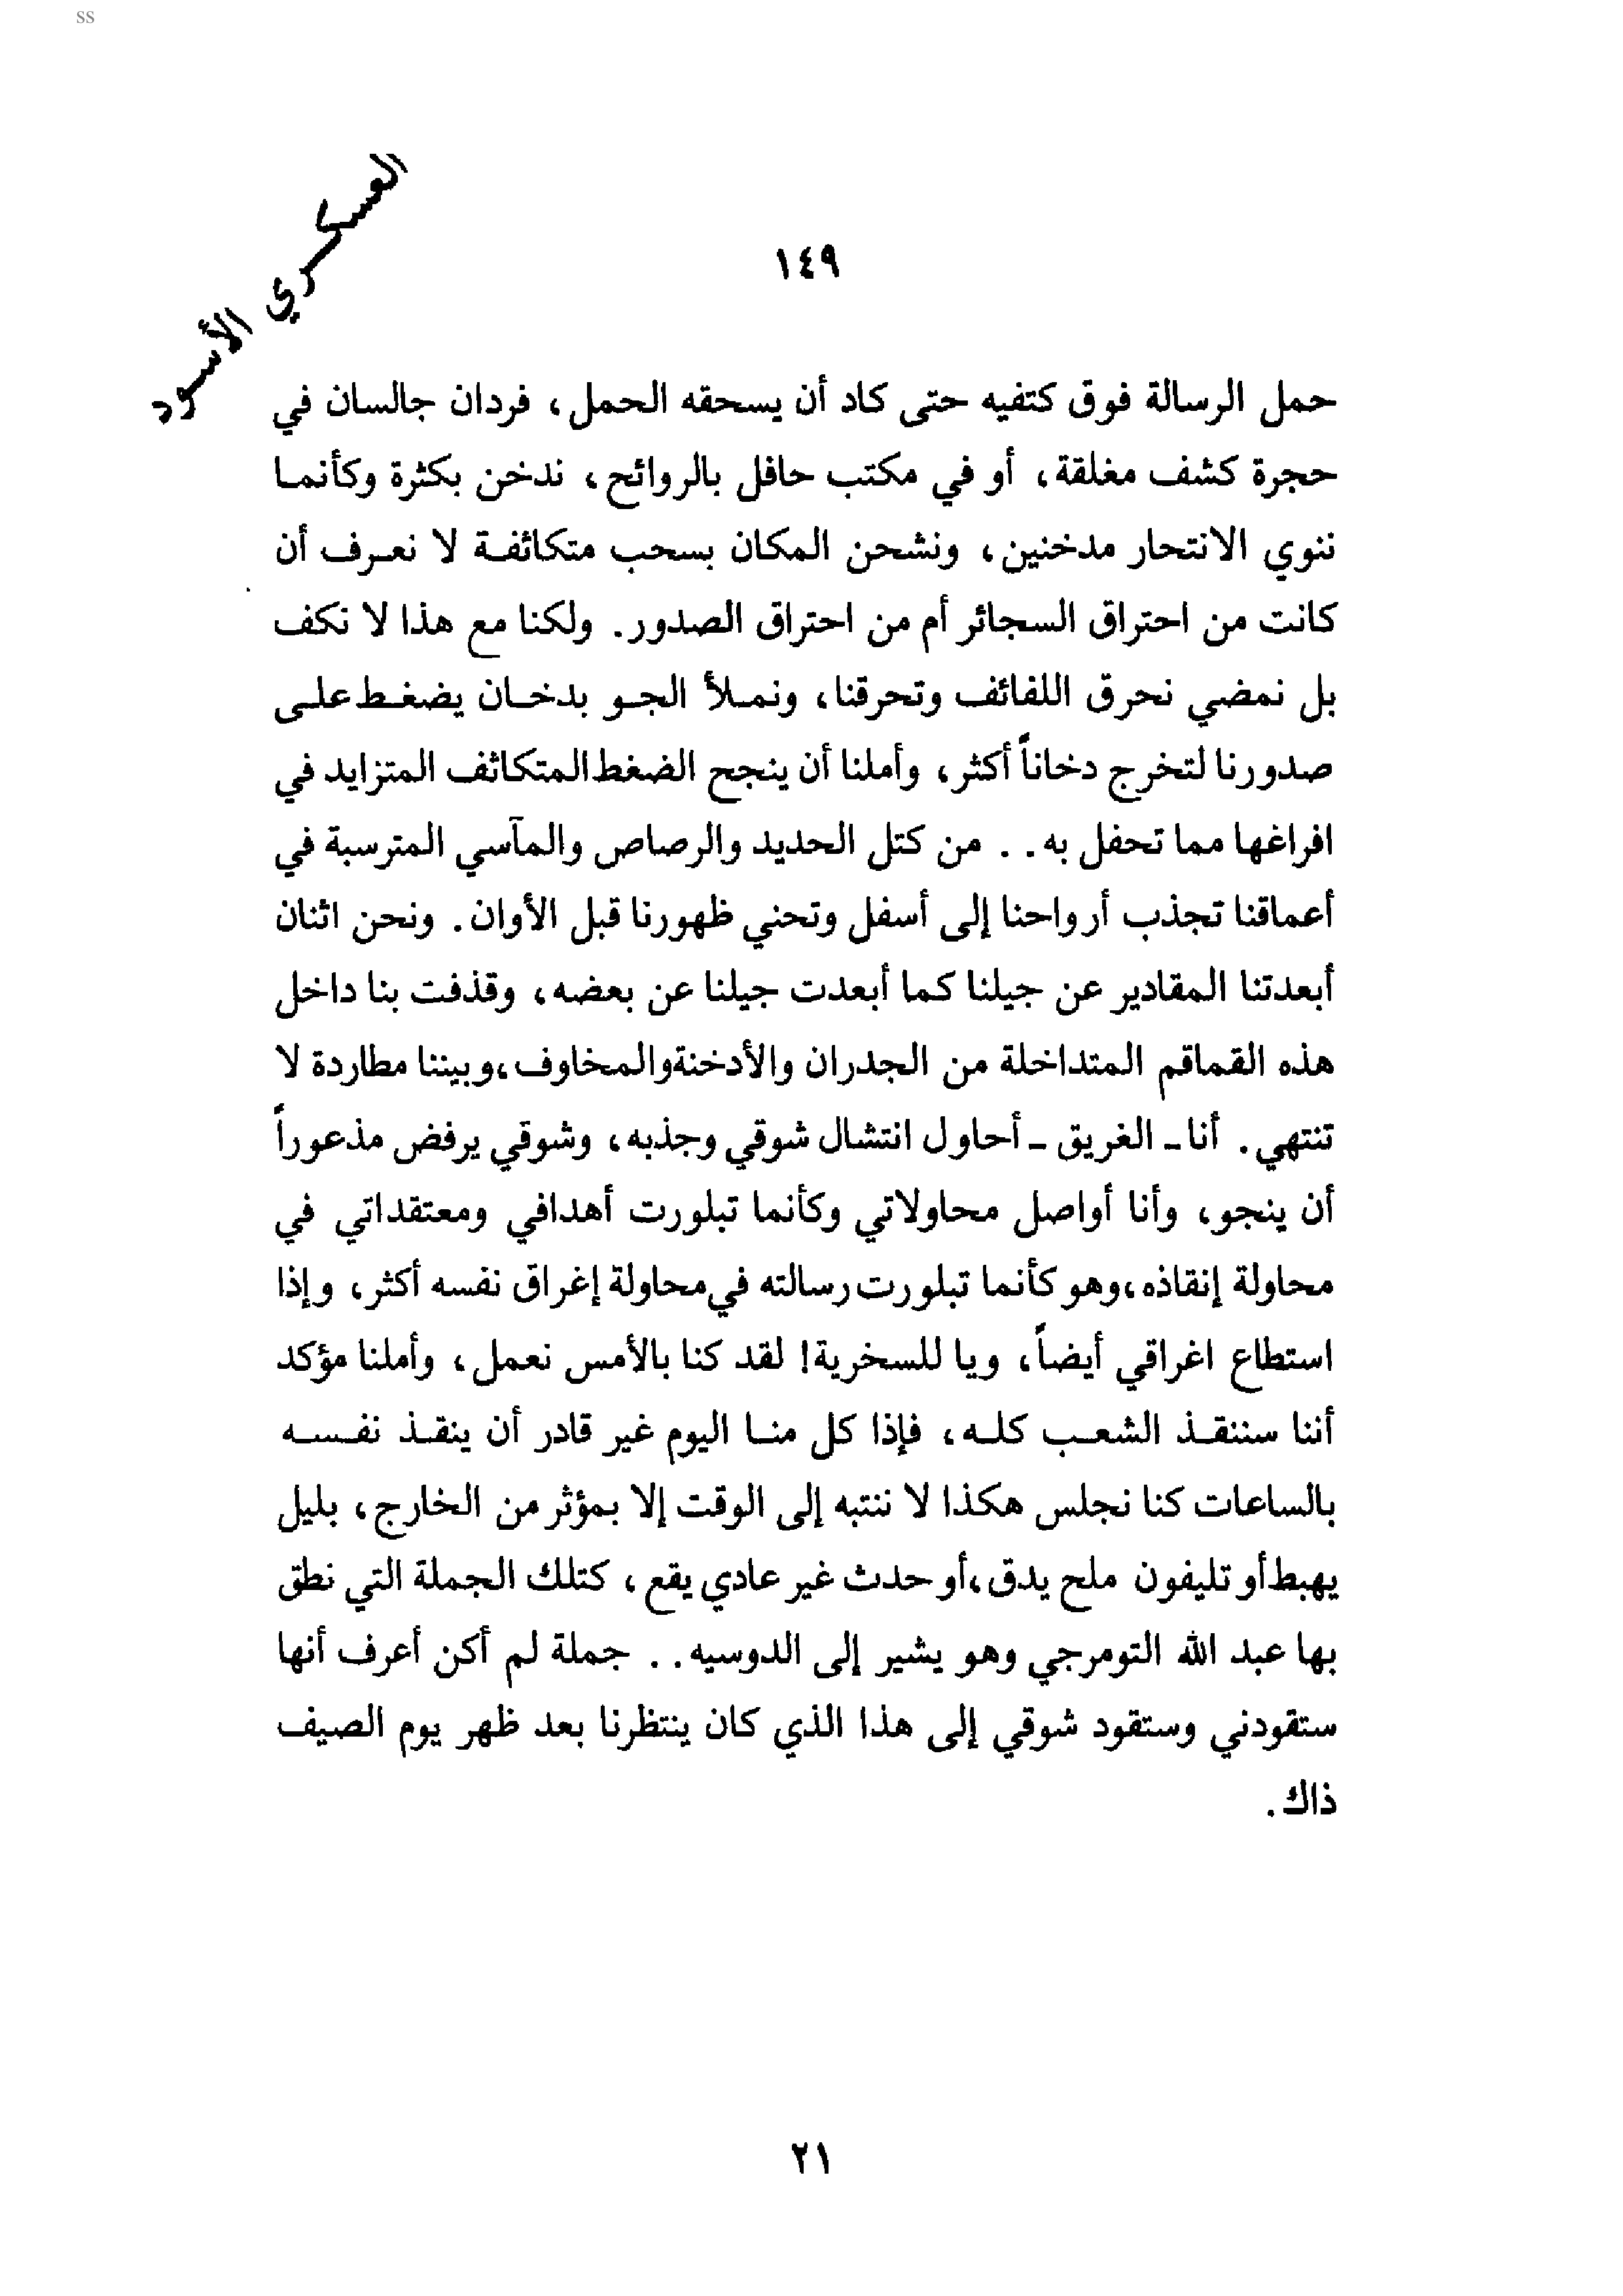 ss
العسكري الأسود
١٤٩
حمل الرسالة فوق كتفيه حتى كاد أن يسحقه الحمل، فردان جالسان في
حجرة كشف مغلقة، أو في مكتب حافل بالروائح، ندخن بكثرة وكأنما
ننوي الانتحار مدخنين، ونشحن المكان بسحب متكاثفة لا نعرف أن
كانت من احتراق السجائر أم من احتراق الصدور. ولكنا مع هذا لا نكف
بل نمضي نحرق اللفائف وتحرقنا، ونملأ الجو بدخان يضغط على
صدورنا لتخرج دخاناً أكثر، وأملنا أن ينجح الضغط المتكاثف المتزايد في
افراغها مما تحفل به.. من كتل الحديد والرصاص والمآسي المترسبة في
أعماقنا تجذب أرواحنا إلى أسفل وتحني ظهورنا قبل الأوان. ونحن اثنان
أبعدتنا المقادير عن جيلنا كما أبعدت جيلنا عن بعضه، وقذفت بنا داخل
هذه القماقم المتداخلة من الجدران والأدخنة والمخاوف، وبيننا مطاردة لا
تنتهي. أنا ـ الغريق ـ أحاول انتشال شوقي وجذبه، وشوقي يرفض مذعوراً
أن ينجو، وأنا أواصل محاولاتي وكأنما تبلورت أهدافي ومعتقداتي في
محاولة إنقاذه، وهو كأنما تبلورت رسالته في محاولة إغراق نفسه أكثر، وإذا
استطاع اغراقي أيضاً، ويا للسخرية! لقد كنا بالأمس نعمل، وأملنا مؤكد
أننا سننقذ الشعب كله، فإذا كل منا اليوم غير قادر أن ينقذ نفسه
بالساعات كنا نجلس هكذا لا ننتبه إلى الوقت إلا بمؤثر من الخارج، بليل
يهبط أو تليفون ملح يدق، أو حدث غير عادي يقع، كتلك الجملة التي نطق
بها عبد الله التومرجي وهو يشير إلى الدوسيه.. جملة لم أكن أعرف أنها
ستقودني وستقود شوقي إلى هذا الذي كان ينتظرنا بعد ظهر يوم الصيف
ذاك.
٢١